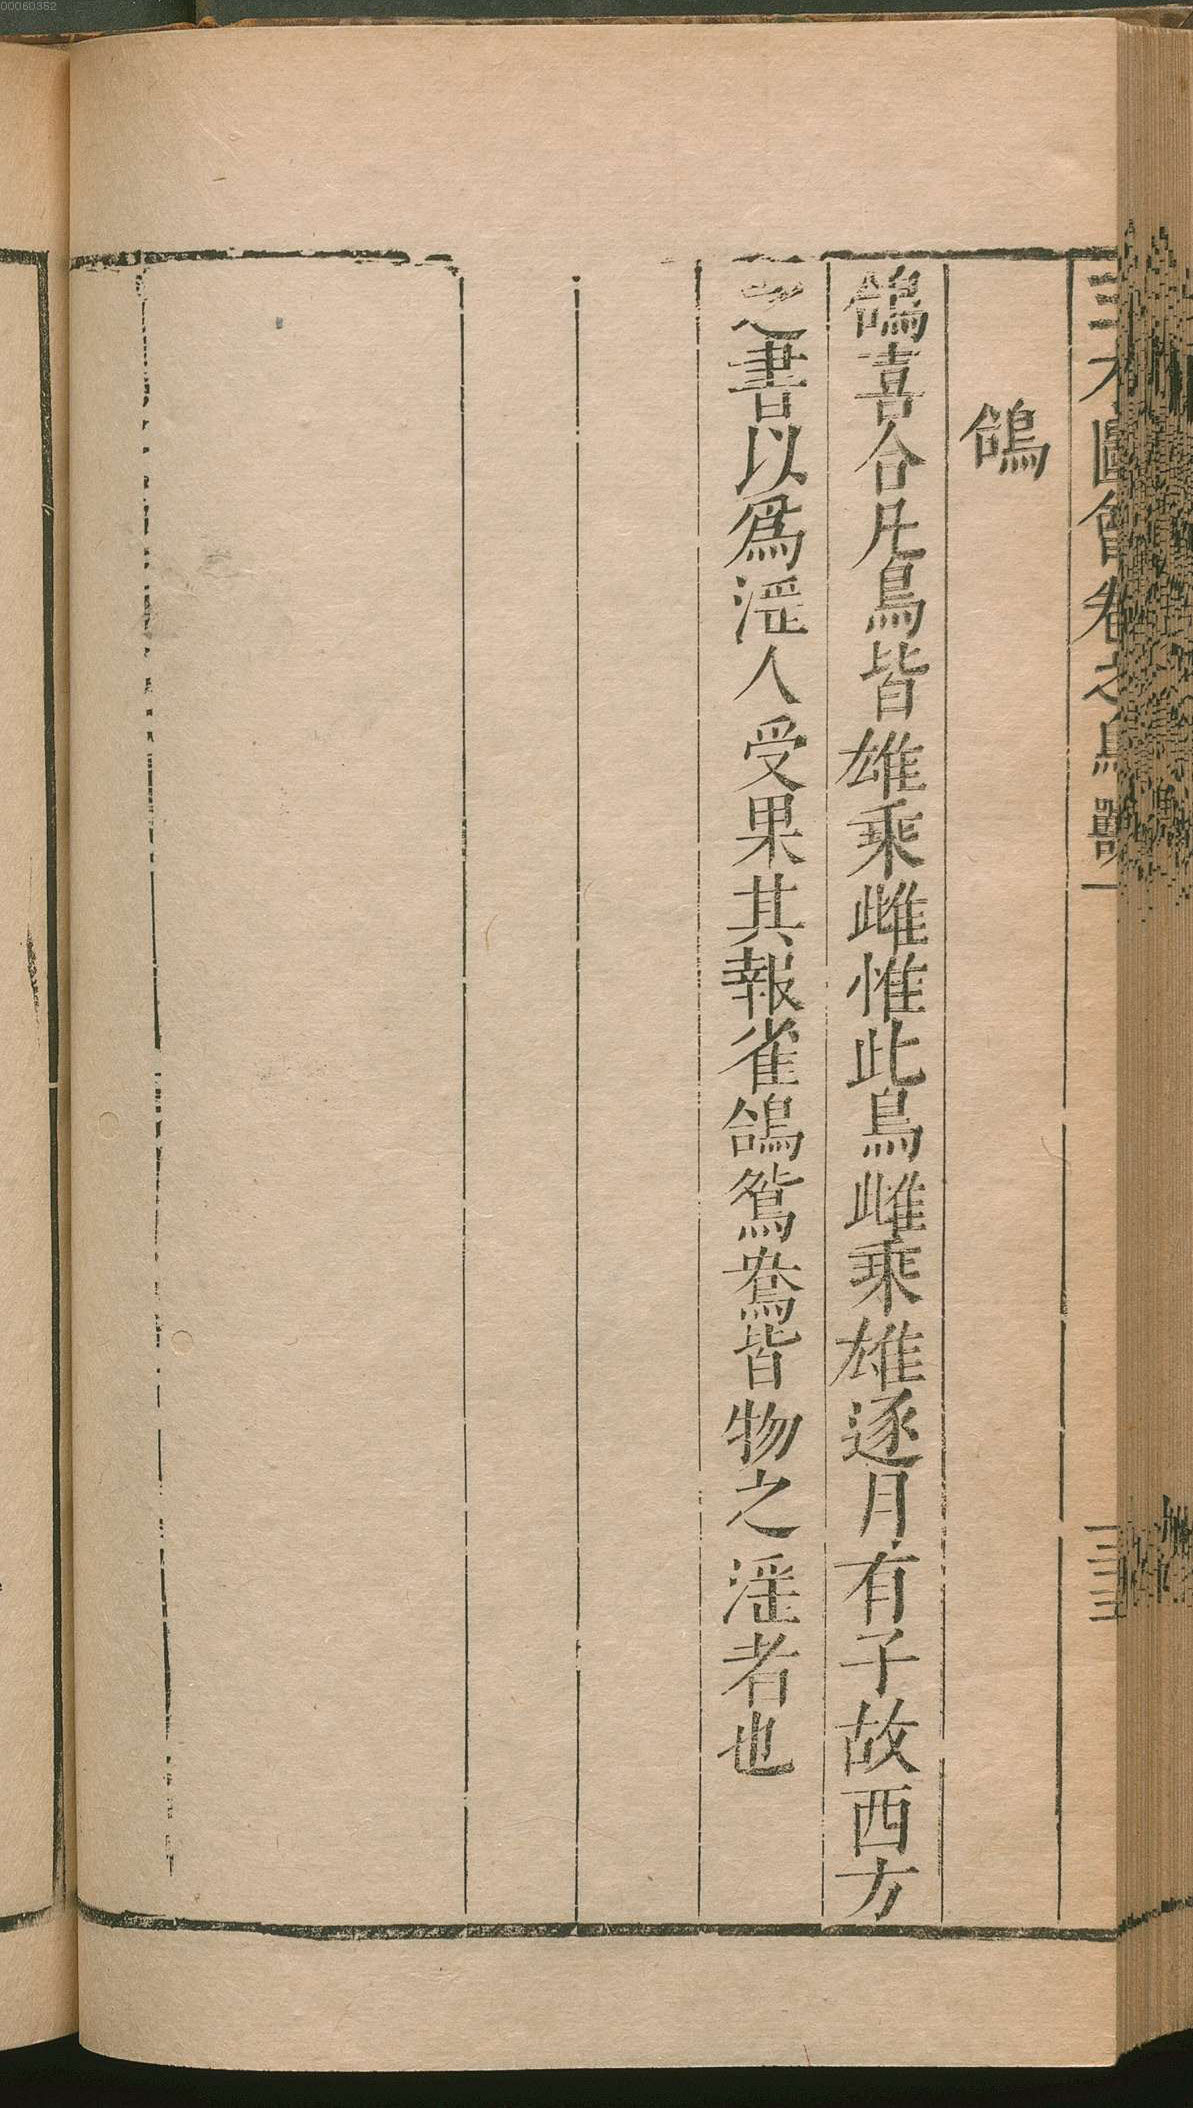 00060352
三才圖會卷之鳥獸一
三三
鴿
鴿喜合凡鳥皆雄乘雌惟此鳥雌乘雄逐月有子故西方
之書以爲滛人受果其報雀鴿鴛鴦皆物之滛者也